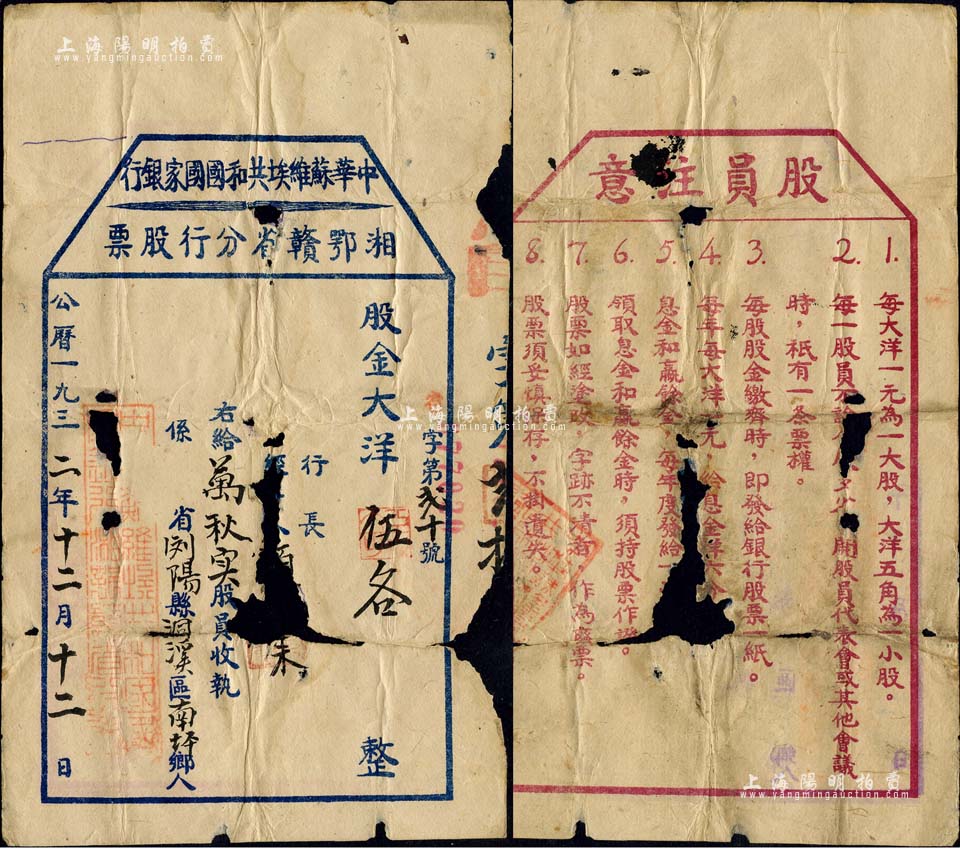 上海陽明拍賣
www.yangmingauction.com
中華蘇維埃共和國國家銀行
湘鄂贛省分行股票
字第 十號
股金大洋 伍各 整
行長
朱
右給萬秋 股員收執
係 省 陽縣洞溪區南 鄉人
公曆一九三二年十二月十二日
上海陽明拍賣
www.yangmingauction.com
上海陽明拍賣
www.yangmingauction.com
股員注意
1. 每大洋一元為一大股，大洋五角為一小股。
2. 每一股員不論 股 多少， 開股員代表會或其他會議
時，祇有一各票權。
3. 每股股金繳齊時，即發給銀行股票一紙。
4. 每年每大洋 元，給息金洋六
5. 息金和贏餘金，每年度發給一
6. 領取息金和贏餘金時，須持股票作 。
7. 股票如經塗改，字跡不清者， 作為廢票。
8. 股票須妥慎保存，不掛遺失。
上海陽明拍賣
www.yangmingauction.com